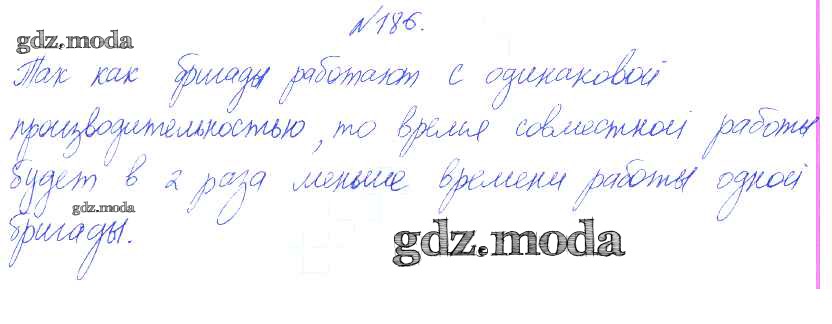 №186.
gdz.moda
Так как бригады работают с одинаковой
производительностью, то время совместной работы
будет в 2 раза меньше времени работы одной
gdz.moda
бригады.
gdz.moda